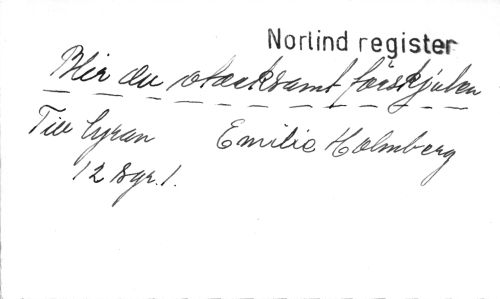 Norlind register
Blir du otacksamt förskjuten
Till lyran Emilie Holmberg
12 sgr. 1.